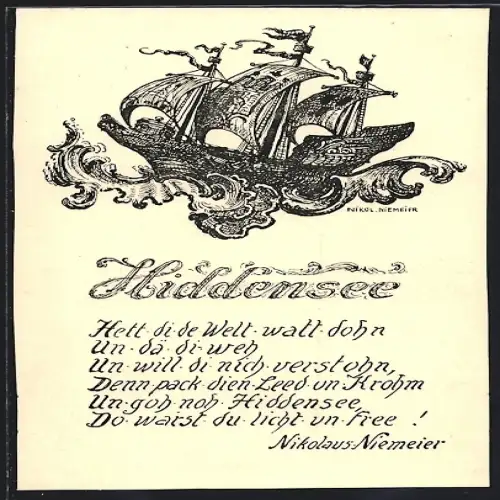 NIKOL. NIEMEIER
Hiddensee
Hett·di·de Welt·watt·dohn
Un·dä·di·weh
Un·will·di·nich·verstohn,
Denn·pack·dien·Leed·un·Krohm
Un·goh·noh·Hiddensee,
Do·warst·du·licht·un·free !
Nikolaus·Niemeier